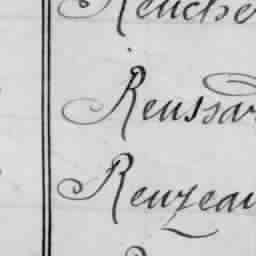 Reuche
Reussar
Reuzeau